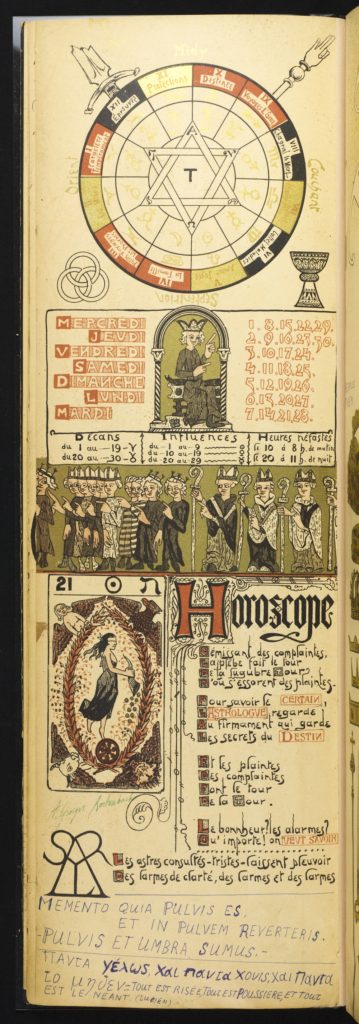 Midy
XI
Protections
X
Distinct
XII
Epreuve
VIII
Orient
Couchant
VI
IV
La Famille
Septentrion
A
T
MERCREDI
JEUDI
VENDREDI
SAMEDI
DIMANCHE
LUNDI
MARDI
1. 8. 15. 22. 29.
2. 9. 16. 23. 30.
3. 10. 17. 24.
4. 11. 18. 25.
5. 12. 19. 26.
6. 13. 20 27.
7. 14. 21. 28.
Décans
du 1 au 19 - ♈
du 20 au 30 - ♉
Influences
du 1 au 9
du 10 au 19
du 20 au 29
Heures néfastes
le 10 à 8 h. de matin
le 20 à 11 h. de nuit
21 ☉
Horoscope
Gémissant des complaintes,
La plèbe fait le tour
De la lugubre Tour
D'où s'essorent des plaintes.
Pour savoir le CERTAIN,
L'ASTROLOGUE, regarde
Au firmament qui garde
Les secrets du DESTIN
Et les plaintes
Des complaintes
Font le tour
De la Tour.
Le bonheur? les alarmes?
Qu'importe! on VEUT SAVOIR
Les astres consultés - tristes - laissent pleuvoir
Des larmes de clarté, des larmes et des larmes
MEMENTO QUIA PULVIS ES,
ET IN PULVEM REVERTERIS.
-PULVIS ET UMBRA SUMUS.-
Παντα γέλως, χαι παντα χονις, χαι Παντα
το μηδεν = TOUT EST RISÉE, TOUT EST POUSSIÈRE, ET TOUT
EST LE NÉANT. (LUCIEN)